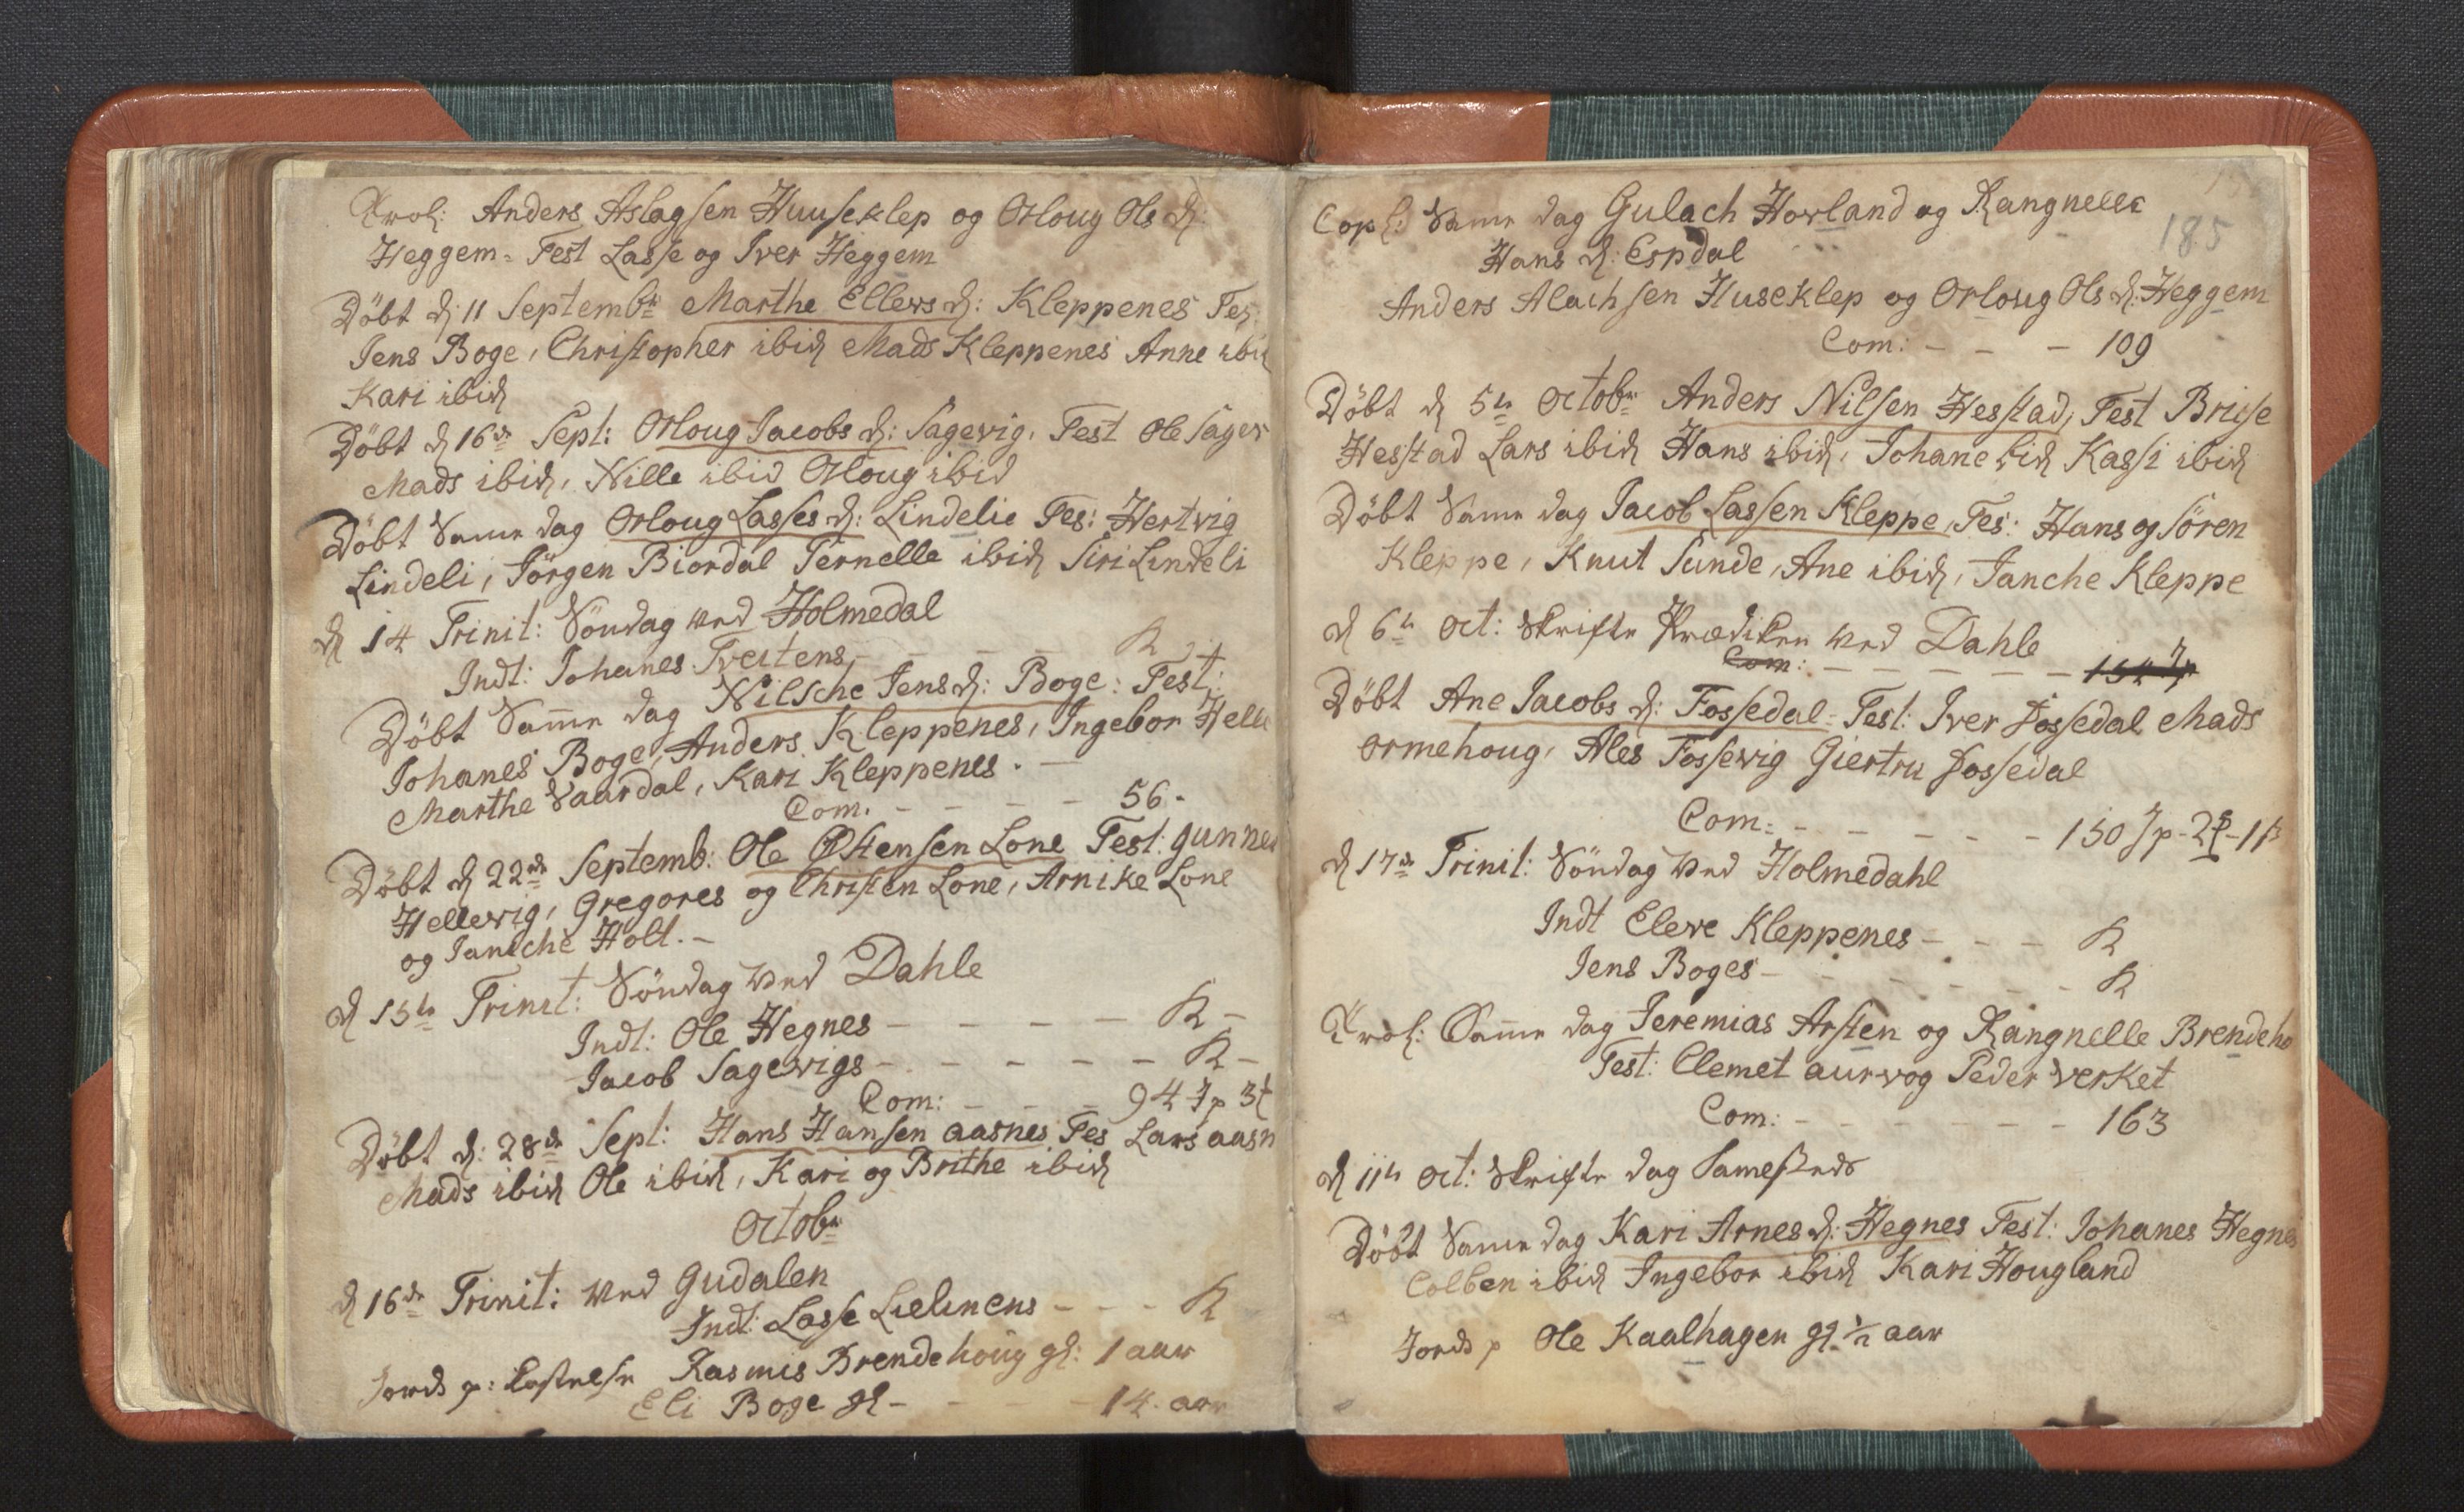 Trol: Anders Aslagsen Huuseklep og Orloug Ols d:
Heggem = Test Lasse og Iver Heggem
Döbt d: 11 Septembr Marthe Ellews d: Kleppenes Tes:
Jens Boge, Christopher ibid Mads Kleppenes Anne ibid
Kari ibid
Döbt d 16de Sept: Orloug Jacobs d: Sagewig, Test Ole Sagew
Mads ibid, Nille ibid Orloug ibid
Döbt Samme dag Orloug Lasses d: Lindelie Tes: Hertvig
Lindeli, Jörgen Biordal Pernelle ibid Siri Lindeli
d 14 Trinit: Söndag ved Holmedal
Indt: Johanes Tveitens - - - - K
Döbt Samme dag Nilsche Jens d: Boge: Test:
Johanes Boge, Anders Kleppenes, Ingebor Helle
Marthe Vaardal, Kari Kleppenes. -
Com. - - - - 56 -
Döbt d 22de Septemb: Ole Östensen Lone Test: Gunner
Hellewig, Gregores og Christen Lone, Arnike Lone
og Janiche Holt. -
d 15de Trinit: Söndag ved Dahle
Indt: Ole Hegnes - - - - K -
Jacob Sagewigs - - - - - K -
Com: - - - 94
Döbt d: 28de Sept: Hans Hansen Aasnes Tes Lars aasn
Mads ibid Ole ibid, Kari og Brithe ibid
Octobr
d 16de Trinit: ved Gudalen
Indt: Lasse Lielinens - - - K
Jords p: Rasmis Brendehoug gl: 1 aar
Eli Boge gl - - - - 14. aar
185
Copl: Samme dag Gulach Howland og Rangnelle
Hans d: Espdal
Anders Alachsen Huseklep og Orloug Ols d: Heggem
Com: - - - 109
Döbt d 5te Octobr Anders Nilsen Hesstad, Test Brite
Hesstad Lars ibid Hans ibid, Johane bid Kassi ibid
Döbt Samme dag Jacob Lassen Kleppe, Tes: Hans og Sören
Kleppe, Knut Sunde, Ane ibid, Janche Kleppe
d 6te Oct: Skrifte Prædiken ved Dahle
Com: - - - - -
Döbt Ane Jacobs d: Fossedal = Test: Iver Fossedal Mads
Ormehoug, Ales Fossewig Giertru Fossedal
Com: - - - - - - 150
d 17de Trinit: Söndag ved Holmedahl
Indt Elewe Kleppenes - - - K
Jens Boges - - - - - - K
Trol: Samme dag Jeremias Arsten og Rangnelle Brendeho
Test: Clemet aurvog Peder verket
Com: - - - - - - 163
d 11te Oct: Skrifte dag Samesteds
Döbt Samme dag Kari Arnes d: Hegnes Test: Johanes Hegnes
Colben ibid Ingebor ibid Kari Hougland
Jords p Ole Kaalhagen gl ½ aar